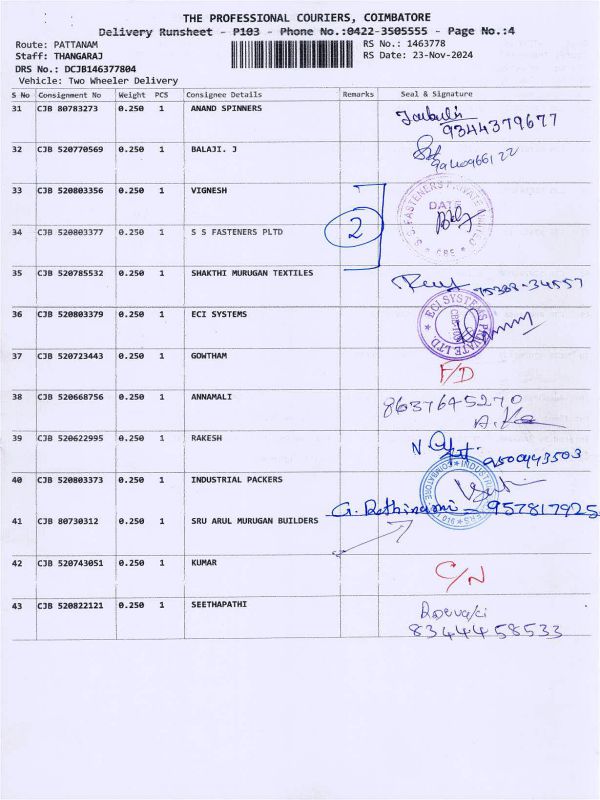 THE PROFESSIONAL COURIERS, COIMBATORE
Delivery Runsheet - P103 - Phone No.:0422-3505555 - Page No.:4
Route: PATTANAM
RS No.: 1463778
Staff: THANGARAJ
RS Date: 23-Nov-2024
DRS No.: DCJB146377804
Vehicle: Two Wheeler Delivery
S No Consignment No Weight PCS Consignee Details Remarks Seal & Signature
31 CJB 80783273 0.250 1 ANAND SPINNERS
9344379677
32 CJB 520770569 0.250 1 BALAJI. J
33 CJB 520803356 0.250 1 VIGNESH
DATE
2
34 CJB 520803377 0.250 1 S S FASTENERS PLTD
S.S. FASTENERS PRIVATE LIMITED
CBE
35 CJB 520785532 0.250 1 SHAKTHI MURUGAN TEXTILES
36 CJB 520803379 0.250 1 ECI SYSTEMS
ECI SYSTEMS PRIVATE LTD.
37 CJB 520723443 0.250 1 GOWTHAM F/D
38 CJB 520668756 0.250 1 ANNAMALI 8637645270
39 CJB 520622995 0.250 1 RAKESH
9500443503
40 CJB 520803373 0.250 1 INDUSTRIAL PACKERS
G. Rathinami 957817925
41 CJB 80730312 0.250 1 SRU ARUL MURUGAN BUILDERS
42 CJB 520743051 0.250 1 KUMAR C/N
43 CJB 520822121 0.250 1 SEETHAPATHI
8344458533